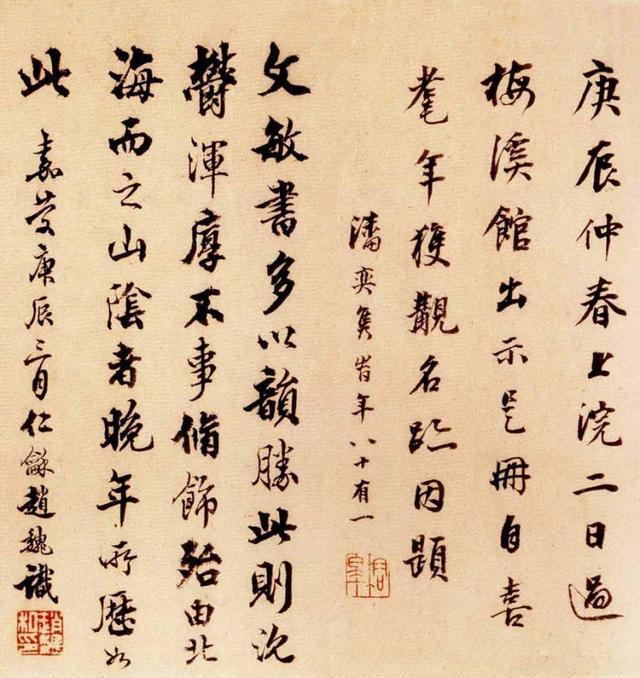 庚辰仲春上浣二日過
梅溪館出示是冊自喜
耄年獲觀名跡因題
潘奕雋時年八十有一
文敏書多以韻勝此則沉
欝渾厚不事脩飾殆由北
海而之山陰者晚年所歷如
此
嘉慶庚辰三月仁龢趙魏識